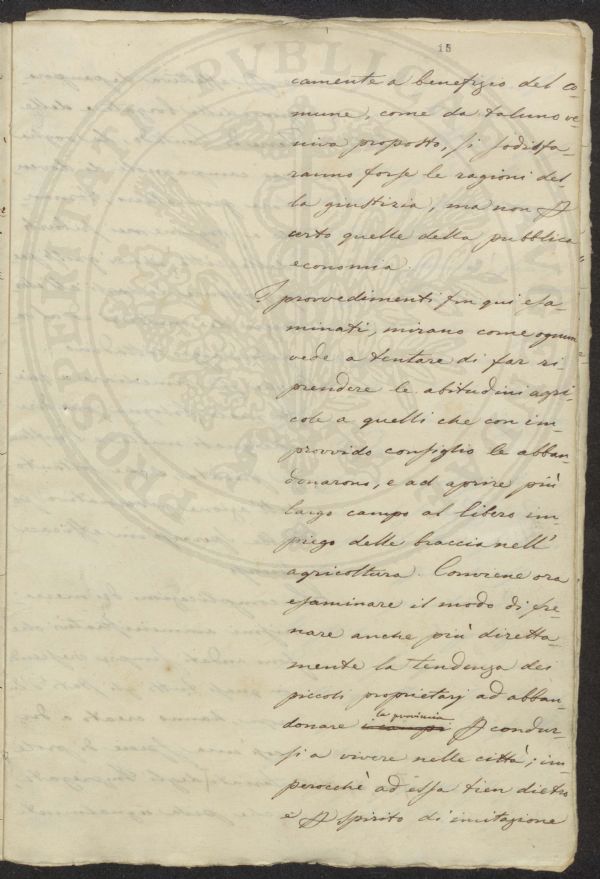 15
camente a benefizio del co-
mune, come da taluno ve
niva proposto, si sodisfa-
ranno forse le ragioni del-
la giustizia, ma non p
certo quelle della pubblica
economia.
I provvedimenti fin qui esa-
minati, mirano come ognun
vede a tentare di far ri
prendere le abitudini agri-
cole a quelli che con im-
provvido consiglio le abban-
donarono, e ad aprire più
largo campo al libero im-
piego delle braccia nell'
agricoltura. Conviene ora
esaminare il modo di fre-
nare anche più diretta-
mente la tendenza dei
piccoli proprietarj ad abban-
la provincia
donare i campi p condur-
si a vivere nelle città; im
perocchè ad essa tien dietro
e p spirito di imitazione